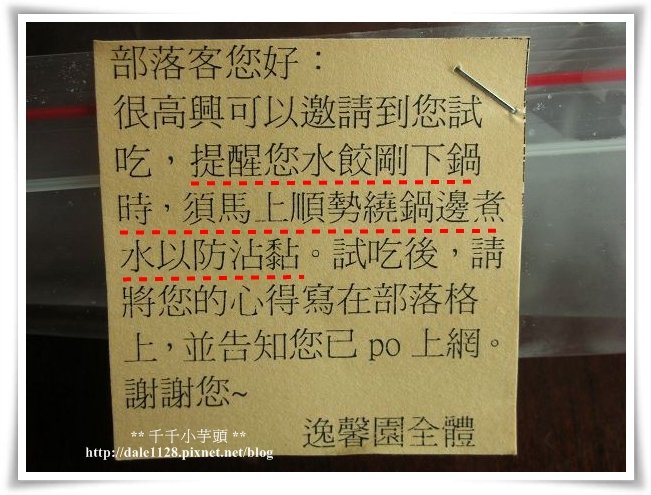 部落客您好：
很高興可以邀請到您試
吃，提醒您水餃剛下鍋
時，須馬上順勢繞鍋邊煮
水以防沾黏。試吃後，請
將您的心得寫在部落格
上，並告知您已 po 上網。
謝謝您~
逸馨園全體
** 千千小芋頭 **
http://dale1128.pixnet.net/blog